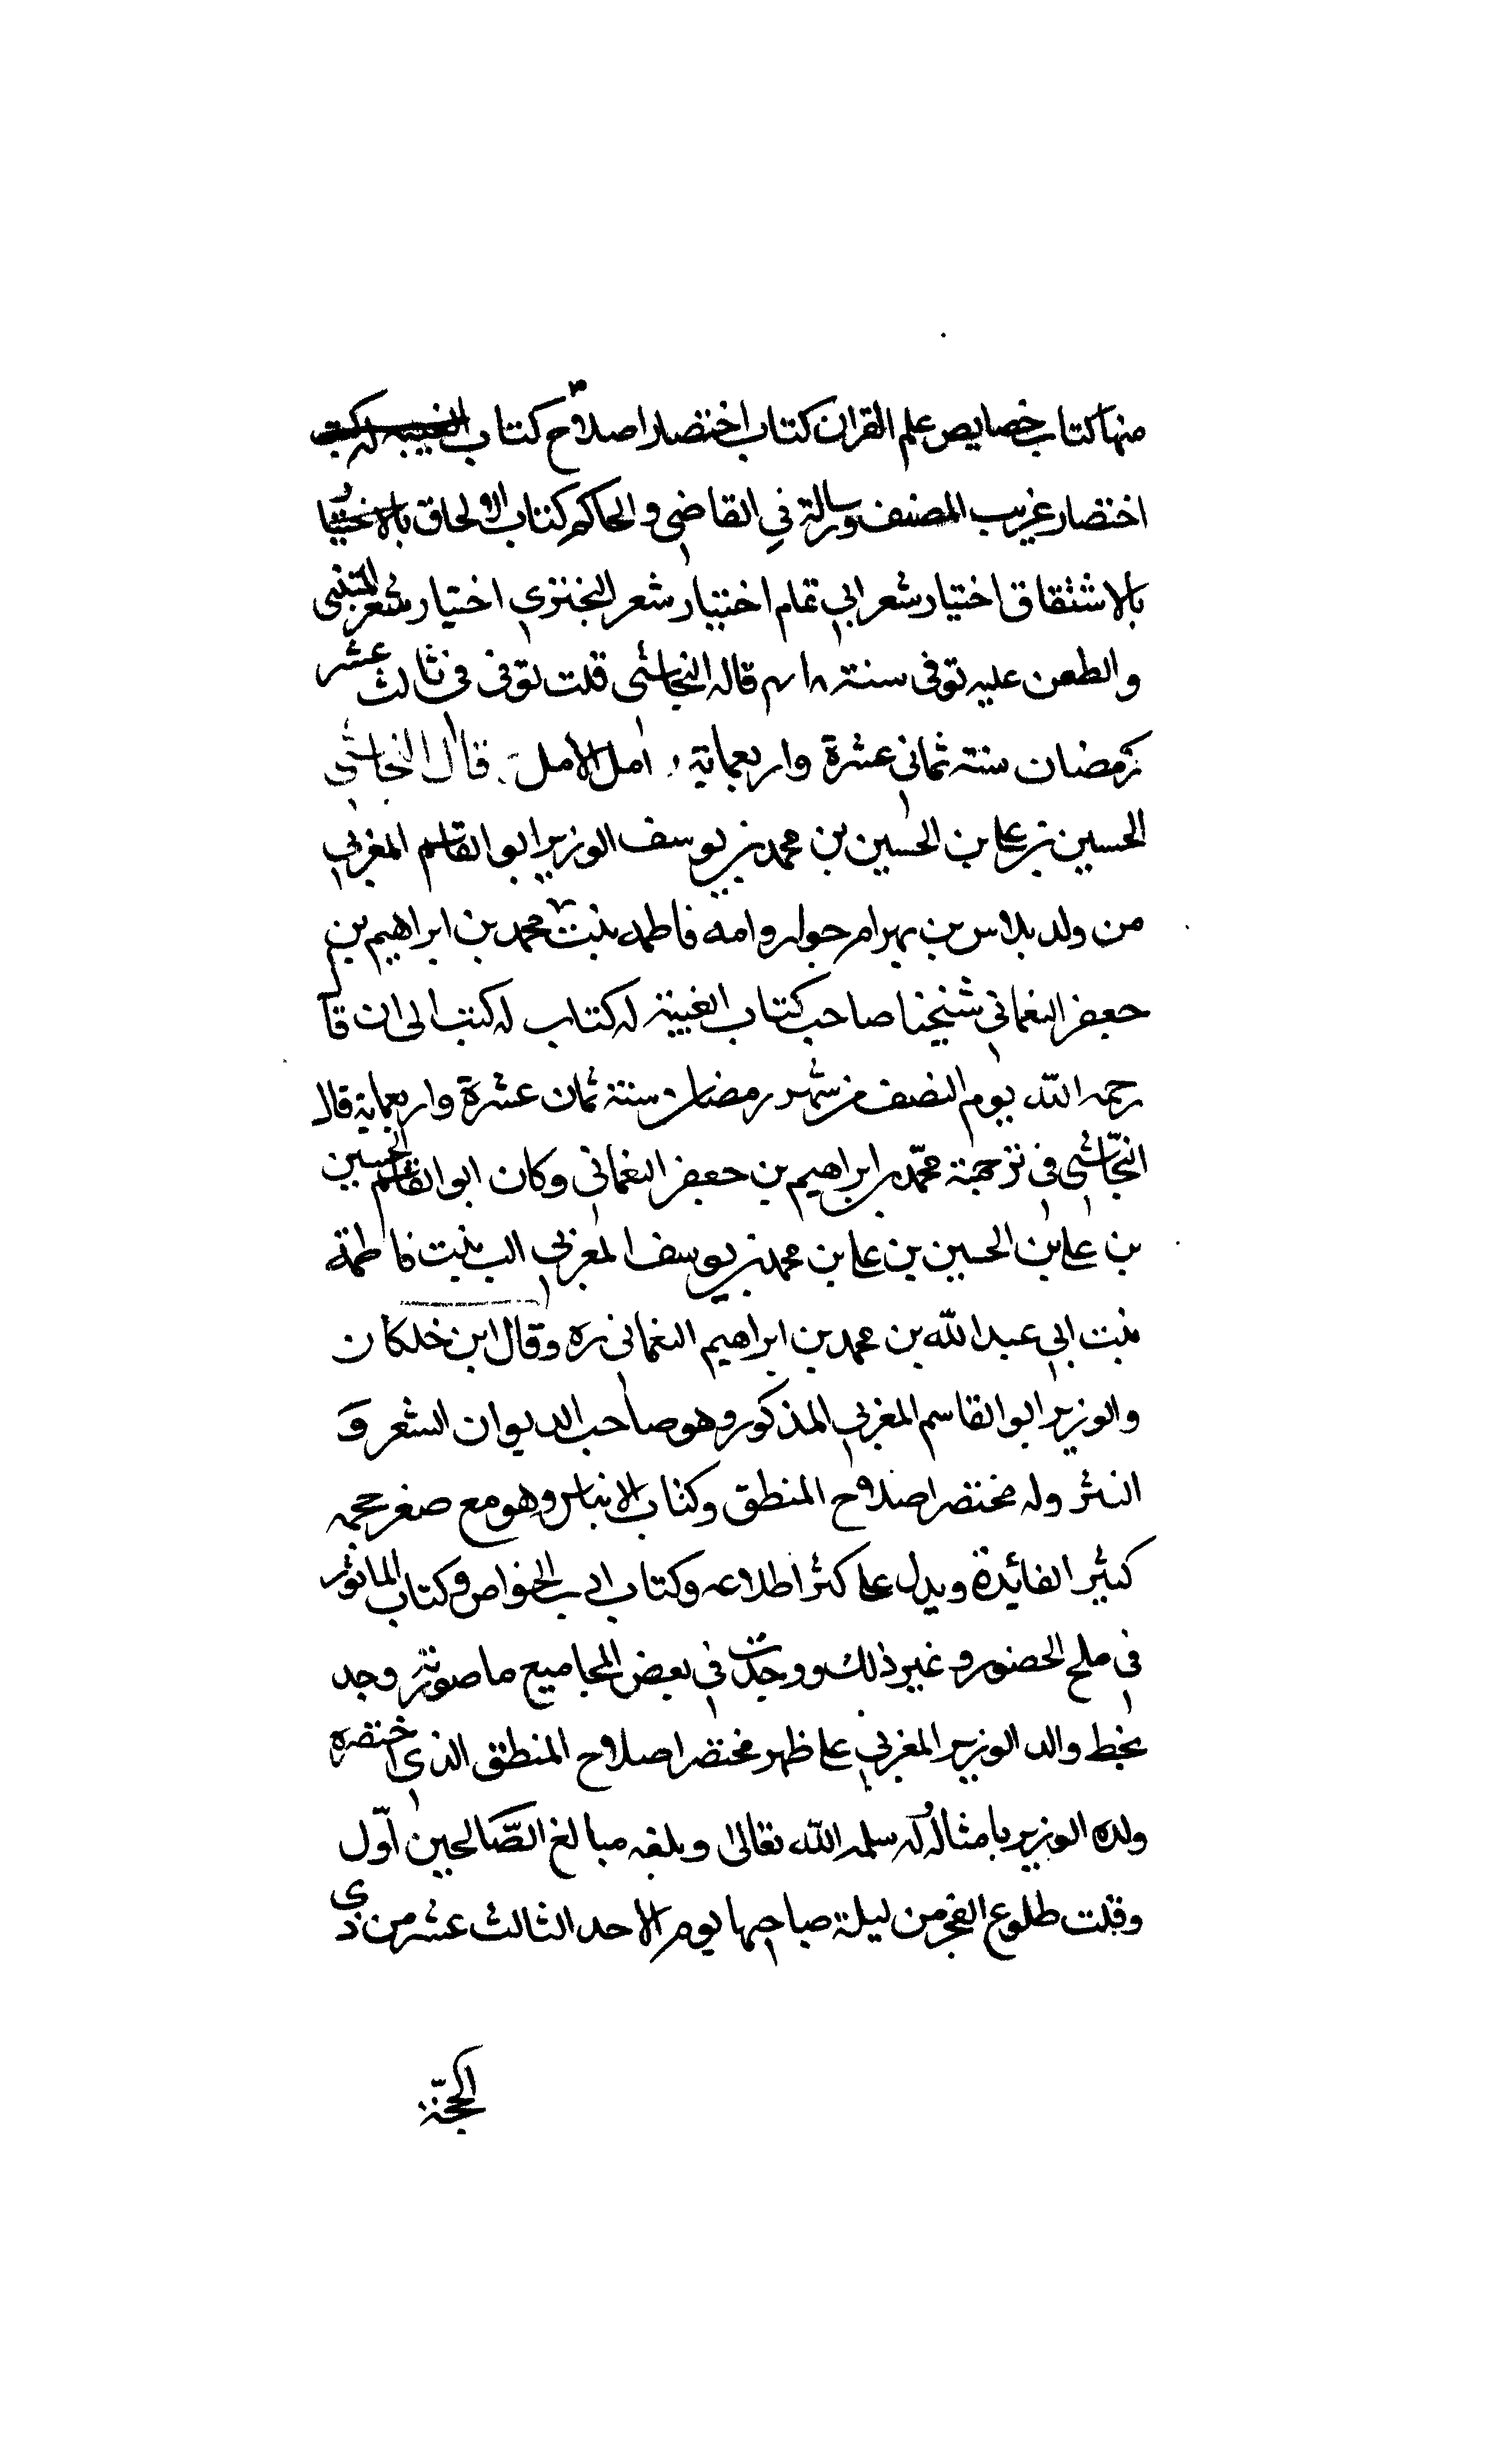 منها كتاب خصايص علم القران كتاب اختصار اصلاح كتاب الغيبه له كتب
اختصار غريب المصنف ورسالة في القاضي والحاكم كتاب الالحاق بالاختيا
بالاشتقاق اختيار شعر ابي تمام اختيار شعر البختري اختيار شعر المتنبي
والطعن عليه توفى سنة ٤١٨ قاله النجاشي قلت توفى في ثالث عشر
رمضان سنة ثماني عشرة واربعماية امل الامل قال النجاشي
الحسين بن علي بن الحسين بن محمد بن يوسف الوزير ابو القاسم المغربي
من ولد بلاس بن بهرام جور وامه فاطمه بنت محمد بن ابراهيم بن
جعفر النعماني شيخنا صاحب كتاب الغيبة له كتاب له كتب الى ان قا
رحمه الله يوم النصف من شهر رمضان سنة ثمان عشرة واربعماية قال
النجّاشي في ترجمة محمّد بن ابراهيم بن جعفر النعماني وكان ابو القاسم الحسين
بن علي بن الحسين بن علي بن محمد بن يوسف المغربي ابن بنت فاطمة
بنت ابي عبد الله بن محمد بن ابراهيم النعماني ره وقال ابن خلكان
والوزير ابو القاسم المغربي المذكور وهو صاحب الديوان الشعر و
النثر وله مختصر اصلاح المنطق وكتاب الايناس وهو مع صغر حجمه
كثير الفائدة ويدل على كثر اطلاعه وكتاب ادب الخواص وكتاب الماثور
في ملح الخدور وغير ذلك ووجدت في بعض المجاميع ما صورته وجد
بخط والد الوزير المغربي على ظهر مختصر اصلاح المنطق الذي اختصره
ولده الوزير بامثاله ولد سلمه الله تعالى وبلغه مبالغ الصّالحين اوّل
وقت طلوع الفجر من ليلة صباحها يوم الاحد الثالث عشر من ذي
الحجّة